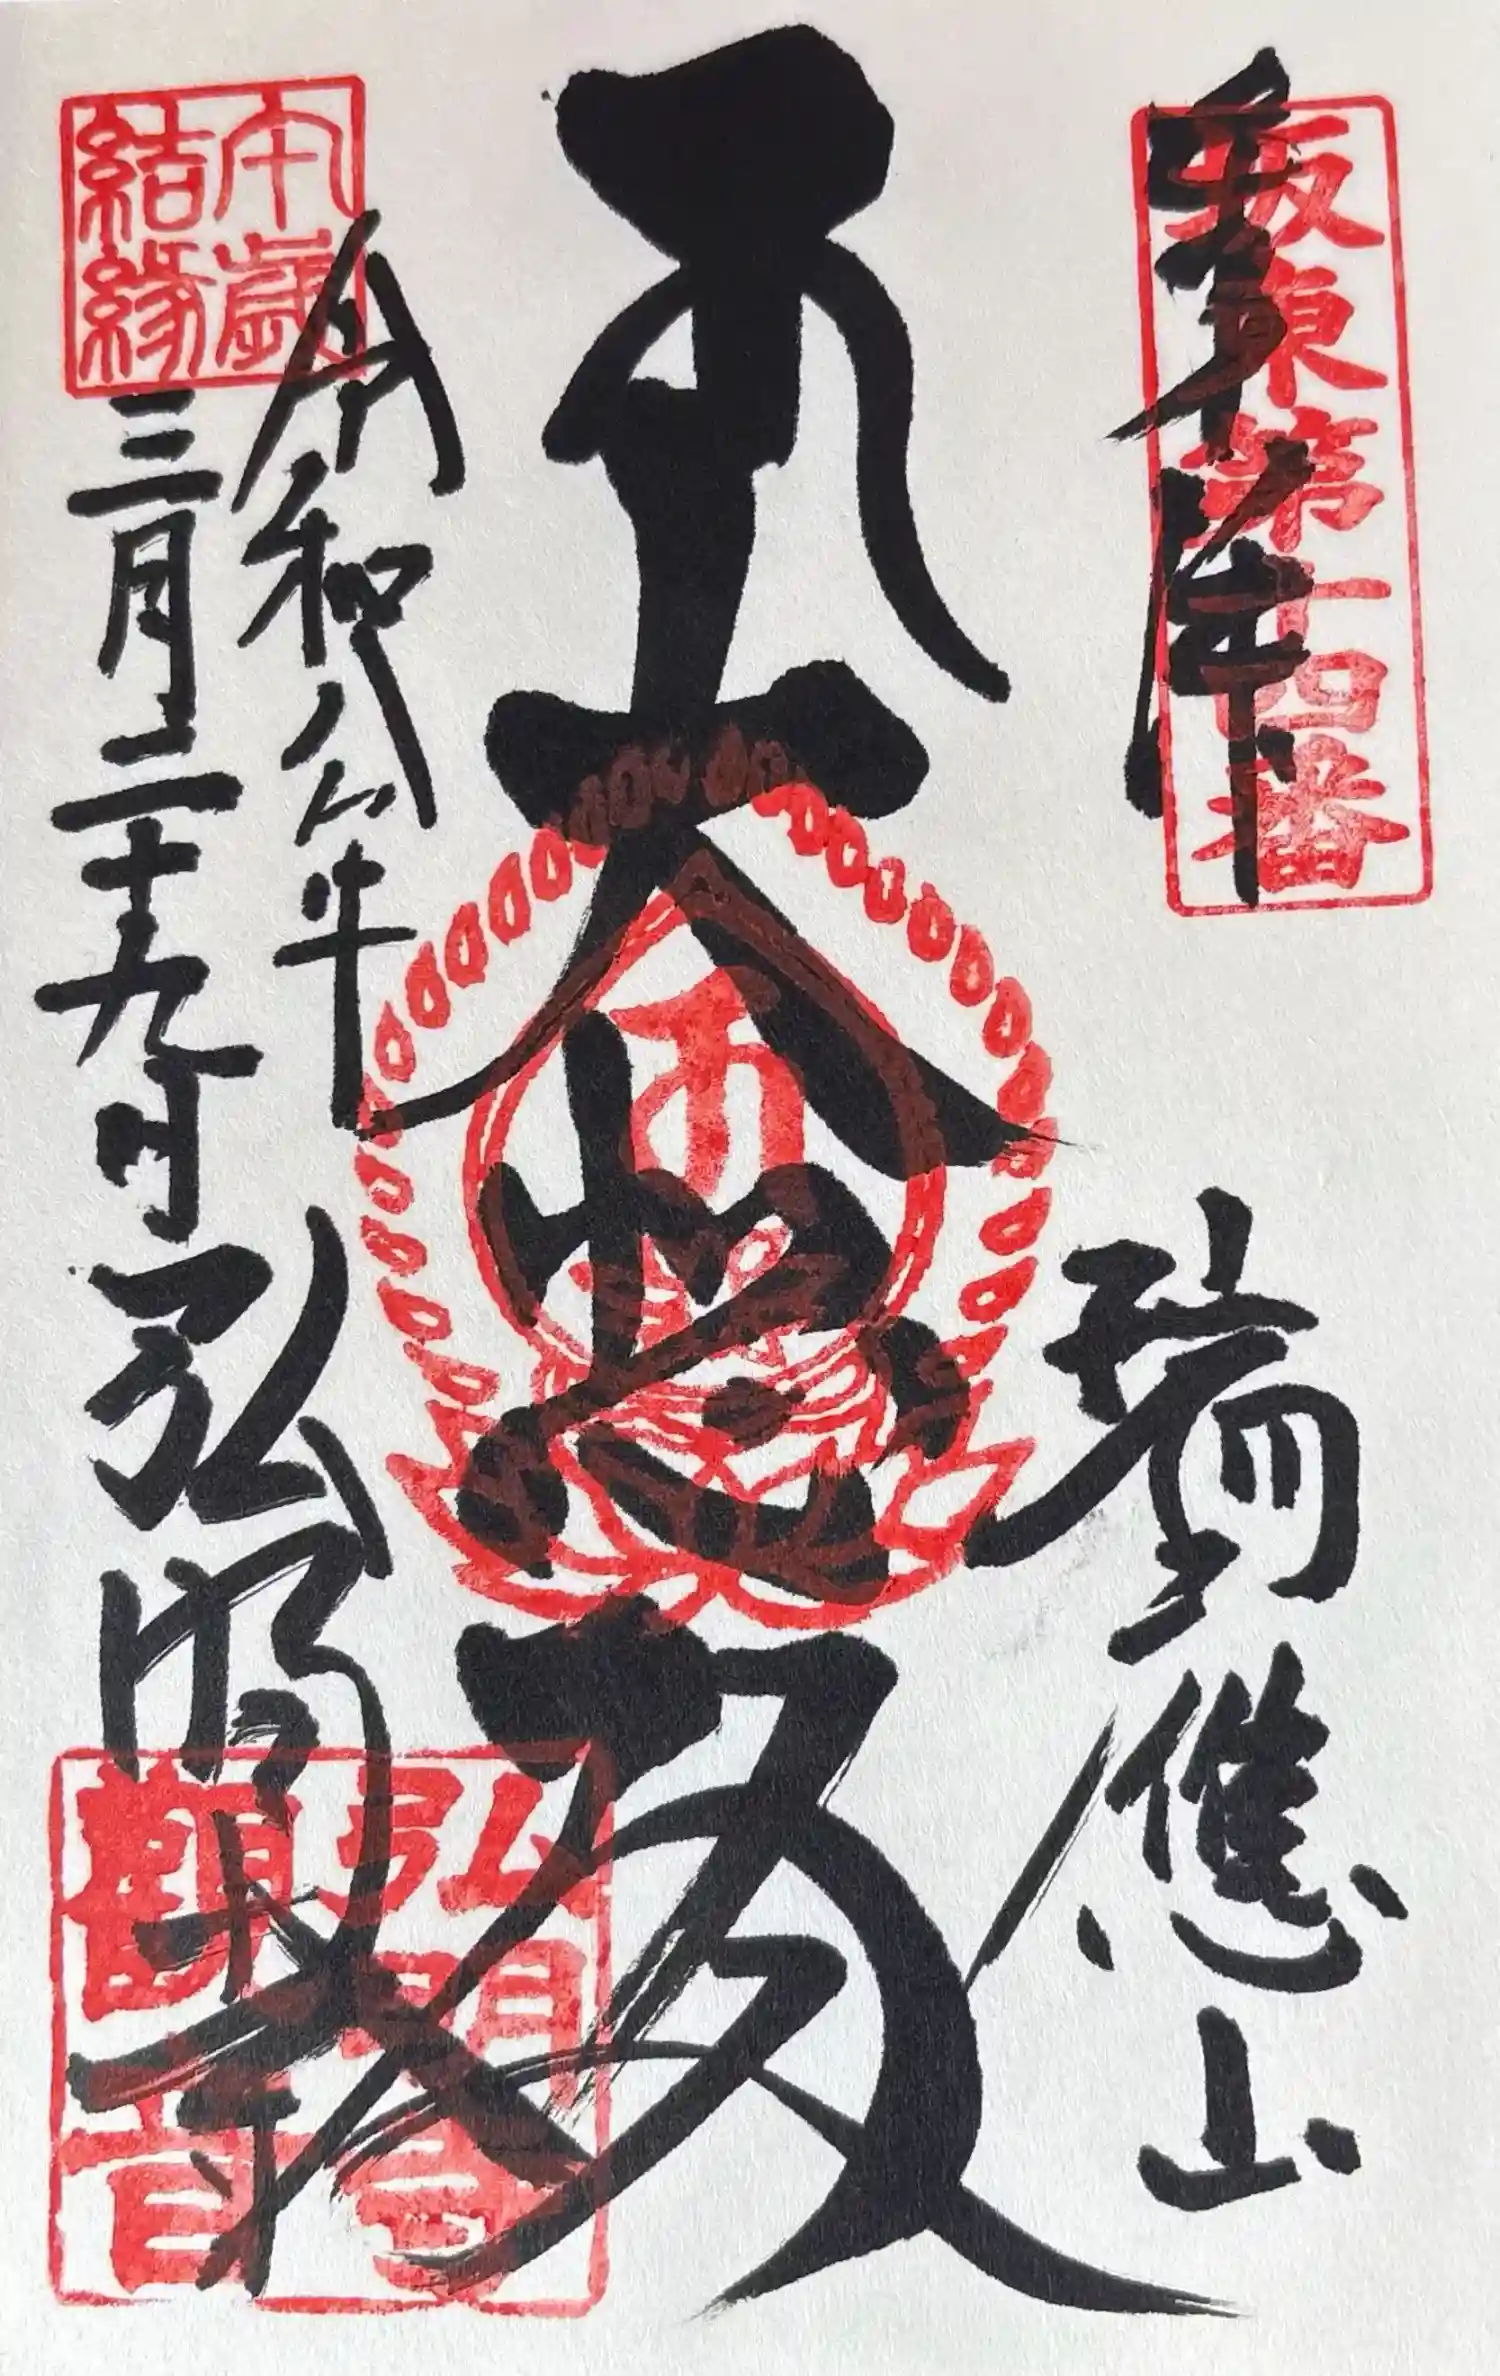 奉拝
坂東第十四番
瑞應山
大悲殿
令和八年
三月二十九日
弘明寺
午歳
結縁
弘明寺
觀音